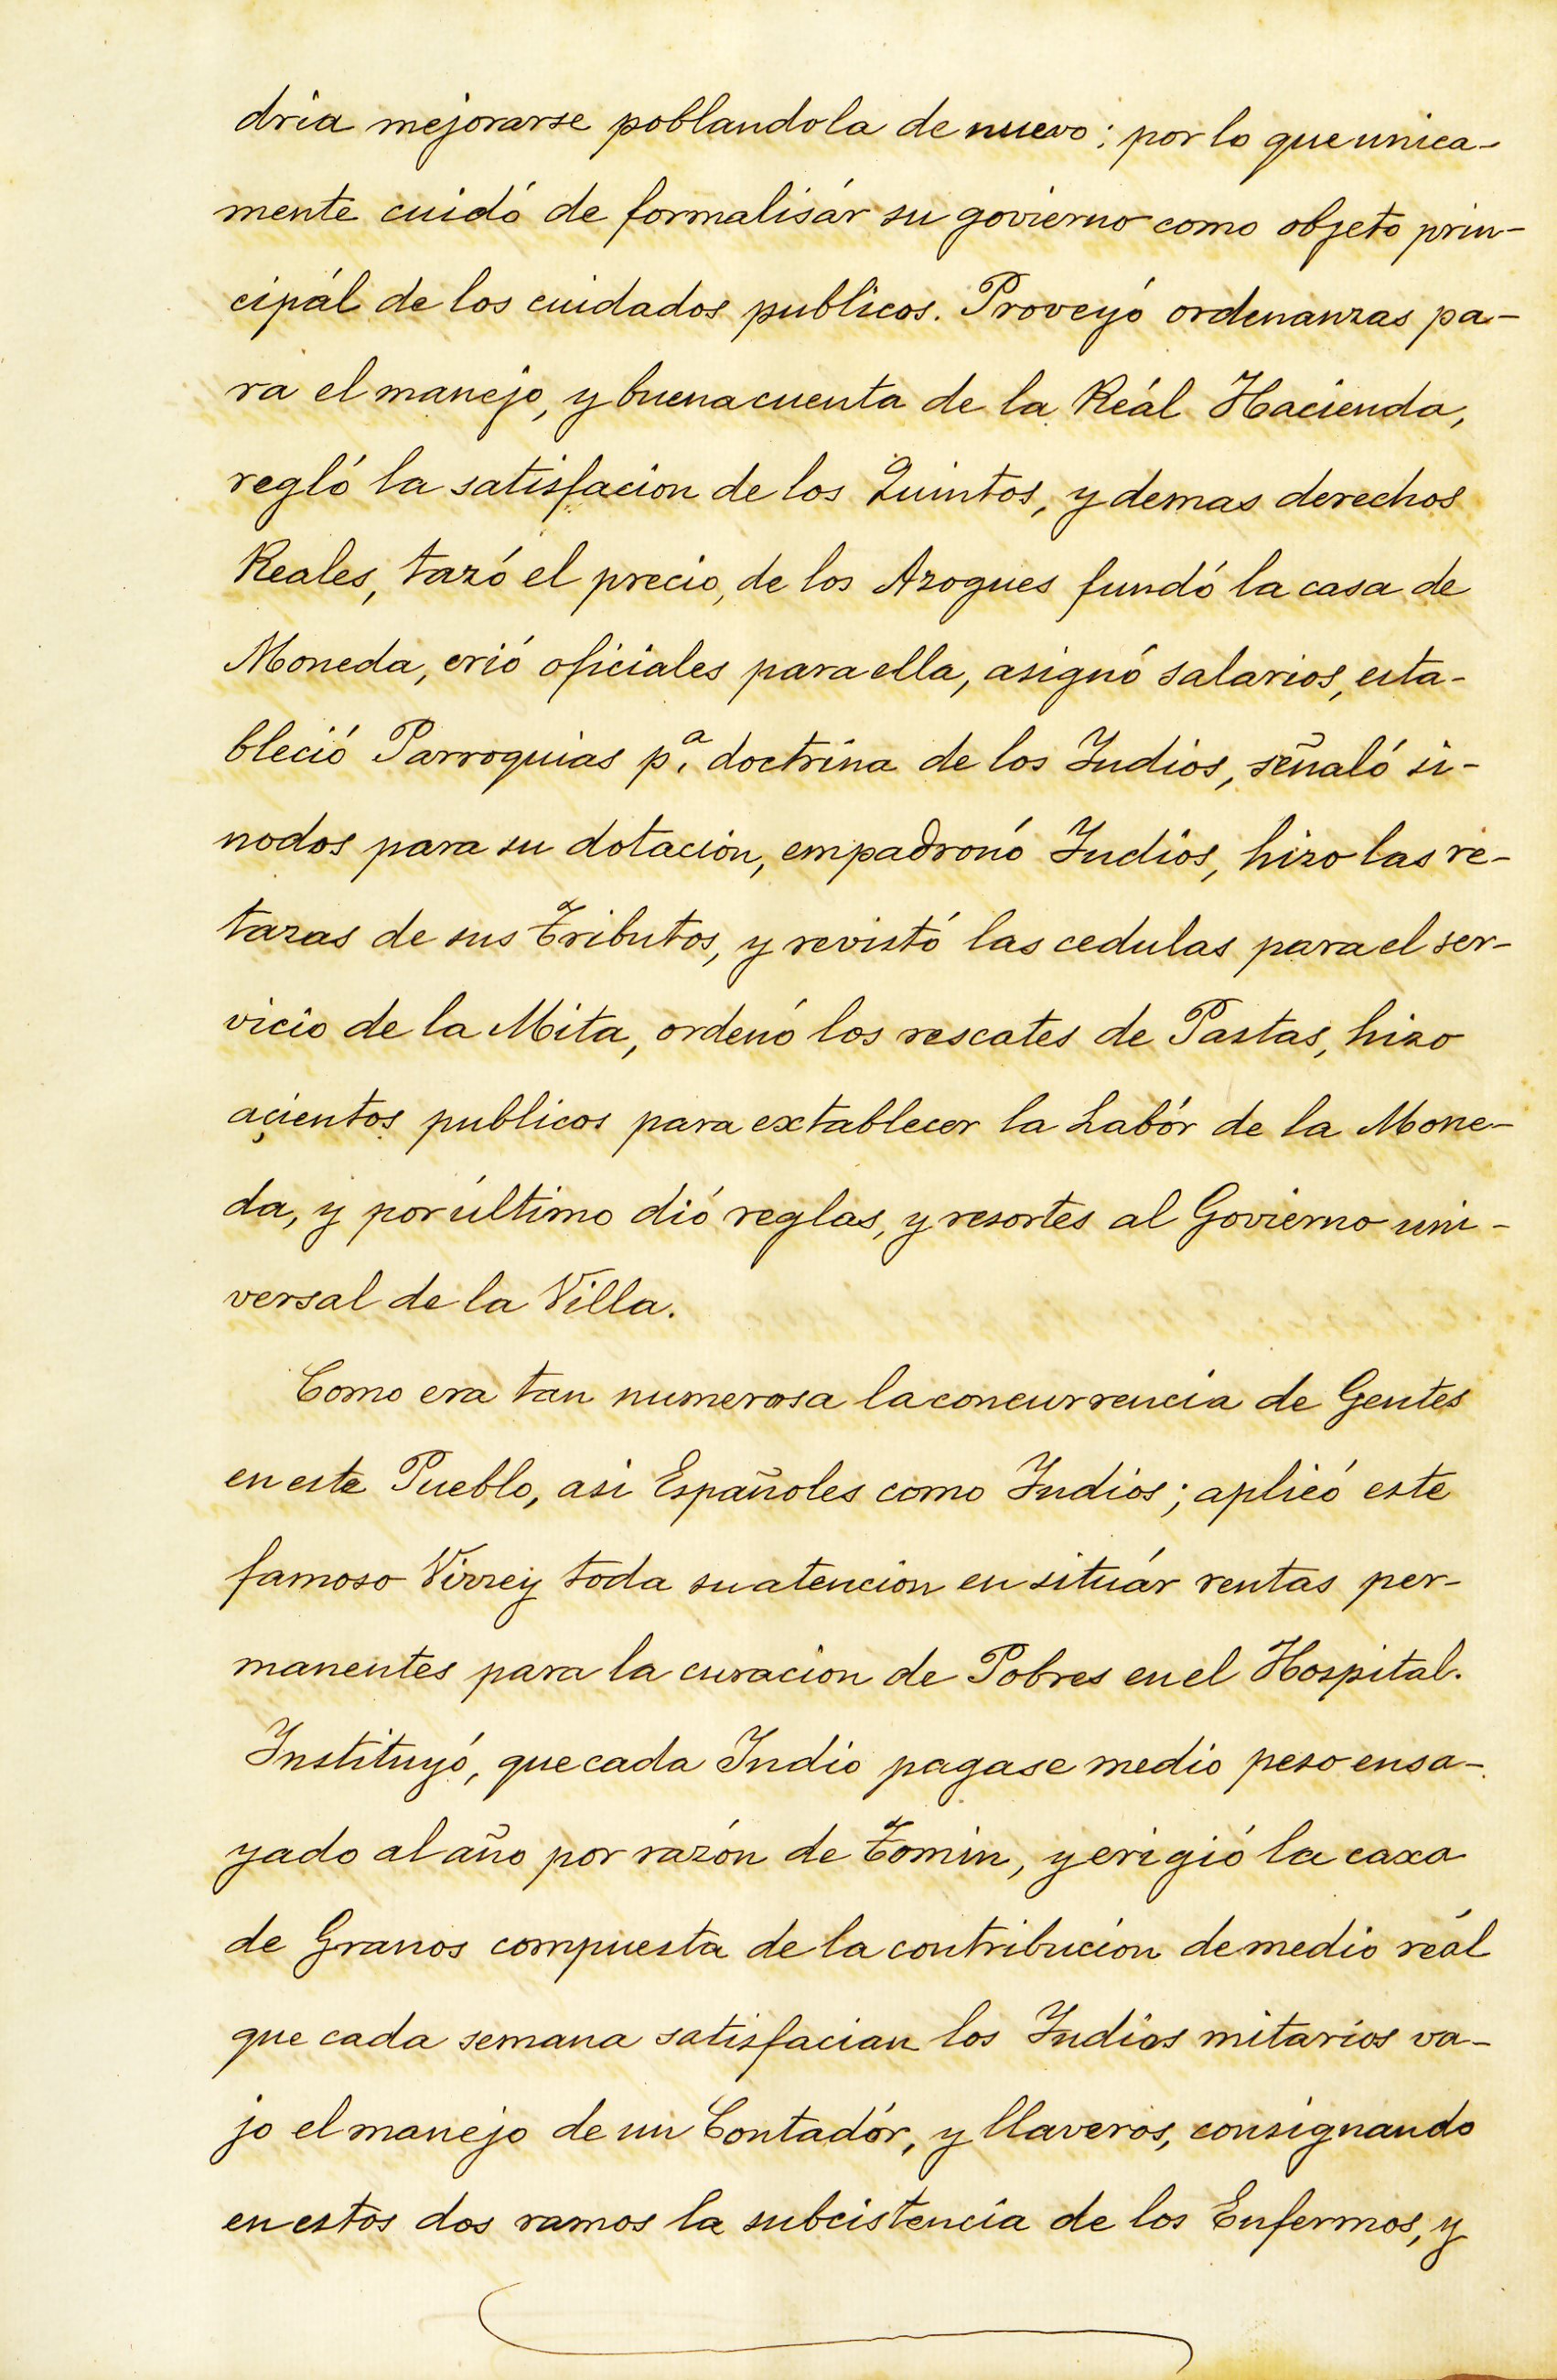 dria mejorarse poblandola de nuevo; por lo que unica-
mente cuidó de formalisár su govierno como objeto prin-
cipál de los cuidados publicos. Proveyó ordenanzas pa-
ra el manejo, y buena cuenta de la Reál Hacienda,
regló la satisfacion de los Quintos, y demas derechos
Reales, tazó el precio, de los Azogues fundó la casa de
Moneda, crió oficiales para ella, asignó salarios, esta-
bleció Parroquias pª. doctrina de los Indios, señaló si-
nodos para su dotacion, empadronó Indios, hizo las re-
tazas de sus Tributos, y revistó las cedulas para el ser-
vicio de la Mita, ordenó los rescates de Pastas, hizo
açientos publicos para extablecer la Labór de la Mone-
da, y por último dió reglas, y resortes al Govierno uni-
versal de la Villa.
Como era tan numerosa la concurrencia de Gentes
en este Pueblo, asi Españoles como Indios; aplicó este
famoso Virrey toda su atencion en situár rentas per-
manentes para la curacion de Pobres en el Hospital.
Instituyó, que cada Indio pagase medio peso ensa-
yado al año por razón de Tomin, y erigió la caxa
de Granos compuesta de la contribucion de medio reál
que cada semana satisfacian los Indios mitarios va-
jo el manejo de un Contadór, y llaveros, consignando
en estos dos ramos la subcistencia de los Enfermos, y